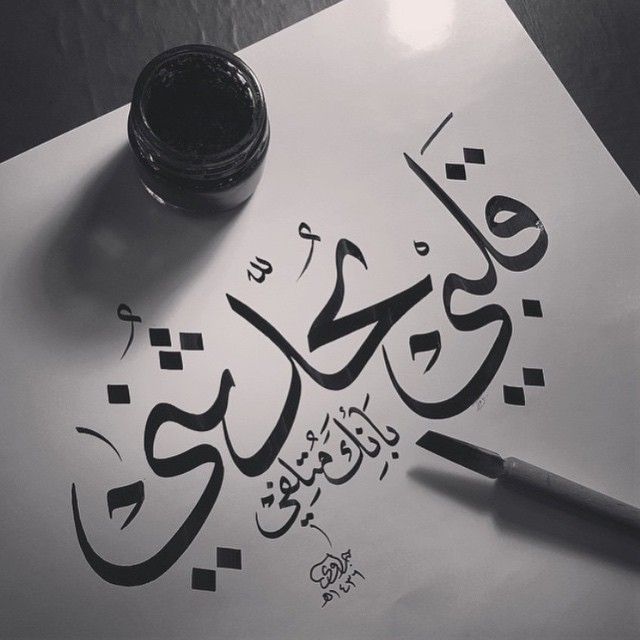 قلبي يُحدِّثُني
بِأَنكَ مُتلِفي
١٤٣٦هـ